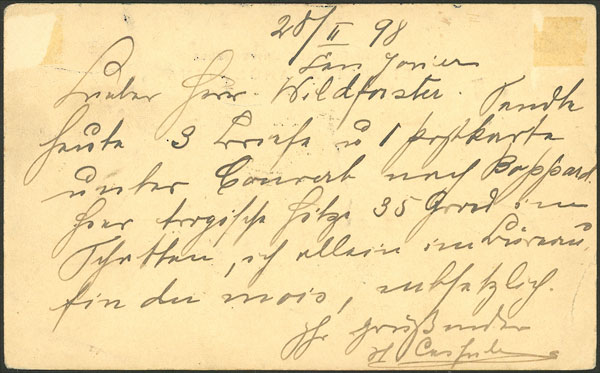 28/II 98
San Javier
Lieber Herr Wildforster. Sandte
heute 3 Briefe u 1 Postkarte
unter Couvert nach Boppard.
Hier tropische Hitze 35 Grad im
Schatten, ich allein im Bureau,
fin du mois, entsetzlich.
Ihr grüßender